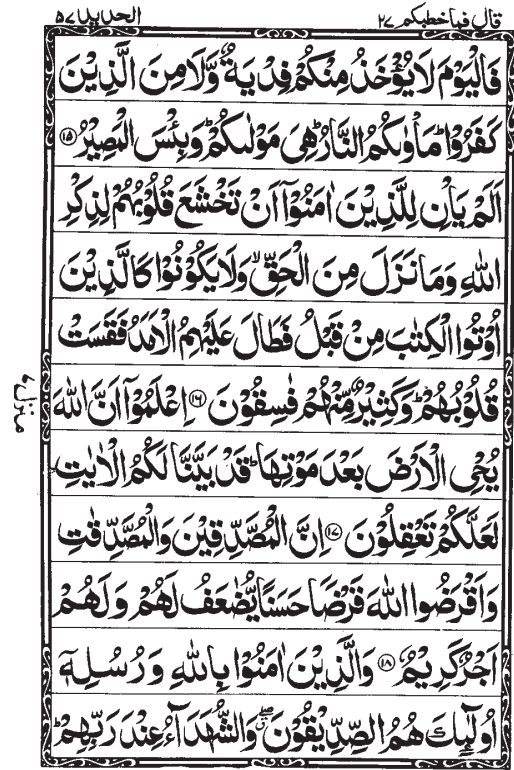 قال فماخطبكم ٢٧
الحديد ٥٧
فَالْيَوْمَ لَا يُؤْخَذُ مِنْكُمْ فِدْيَةٌ وَّلَا مِنَ الَّذِيْنَ
كَفَرُوْا ؕ مَاْوٰىكُمُ النَّارُ ؕ هِىَ مَوْلٰىكُمْ ؕ وَبِئْسَ الْمَصِيْرُ ﴿۱۵﴾
اَلَمْ يَاْنِ لِلَّذِيْنَ اٰمَنُوْۤا اَنْ تَخْشَعَ قُلُوْبُهُمْ لِذِكْرِ
اللّٰهِ وَمَا نَزَلَ مِنَ الْحَقِّ ۙ وَلَا يَكُوْنُوْا كَالَّذِيْنَ
اُوْتُوا الْكِتٰبَ مِنْ قَبْلُ فَطَالَ عَلَيْهِمُ الْاَمَدُ فَقَسَتْ
قُلُوْبُهُمْ ؕ وَكَثِيْرٌ مِّنْهُمْ فٰسِقُوْنَ ﴿۱۶﴾ اِعْلَمُوْۤا اَنَّ اللّٰهَ
يُحْىِ الْاَرْضَ بَعْدَ مَوْتِهَا ؕ قَدْ بَيَّنَّا لَكُمُ الْاٰيٰتِ
لَعَلَّكُمْ تَعْقِلُوْنَ ﴿۱۷﴾ اِنَّ الْمُصَّدِّقِيْنَ وَالْمُصَّدِّقٰتِ
وَاَقْرَضُوا اللّٰهَ قَرْضًا حَسَنًا يُّضٰعَفُ لَهُمْ وَلَهُمْ
اَجْرٌ كَرِيْمٌ ﴿۱۸﴾ وَالَّذِيْنَ اٰمَنُوْا بِاللّٰهِ وَرُسُلِهٖۤ
اُولٰٓئِكَ هُمُ الصِّدِّيْقُوْنَ ۖ ۗ وَالشُّهَدَآءُ عِنْدَ رَبِّهِمْ ؕ
منزل ۷